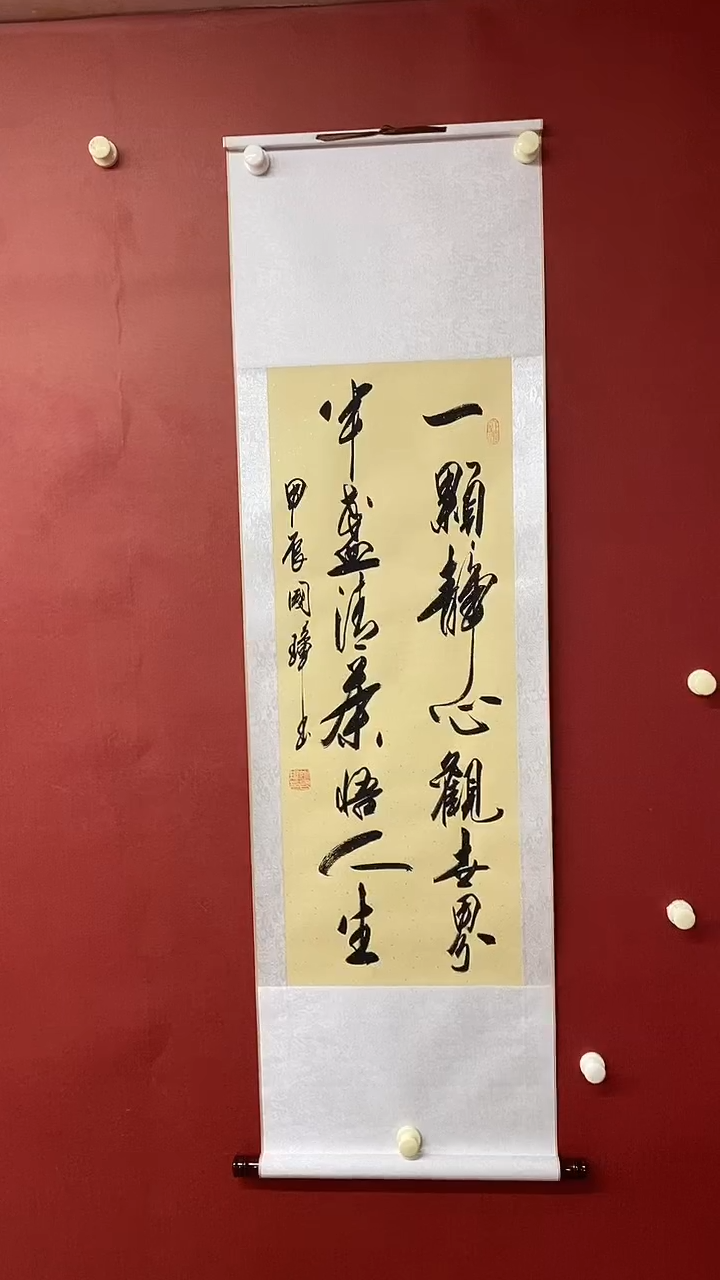 一顆靜心觀世界
半盞清茶悟人生
甲辰國璋書